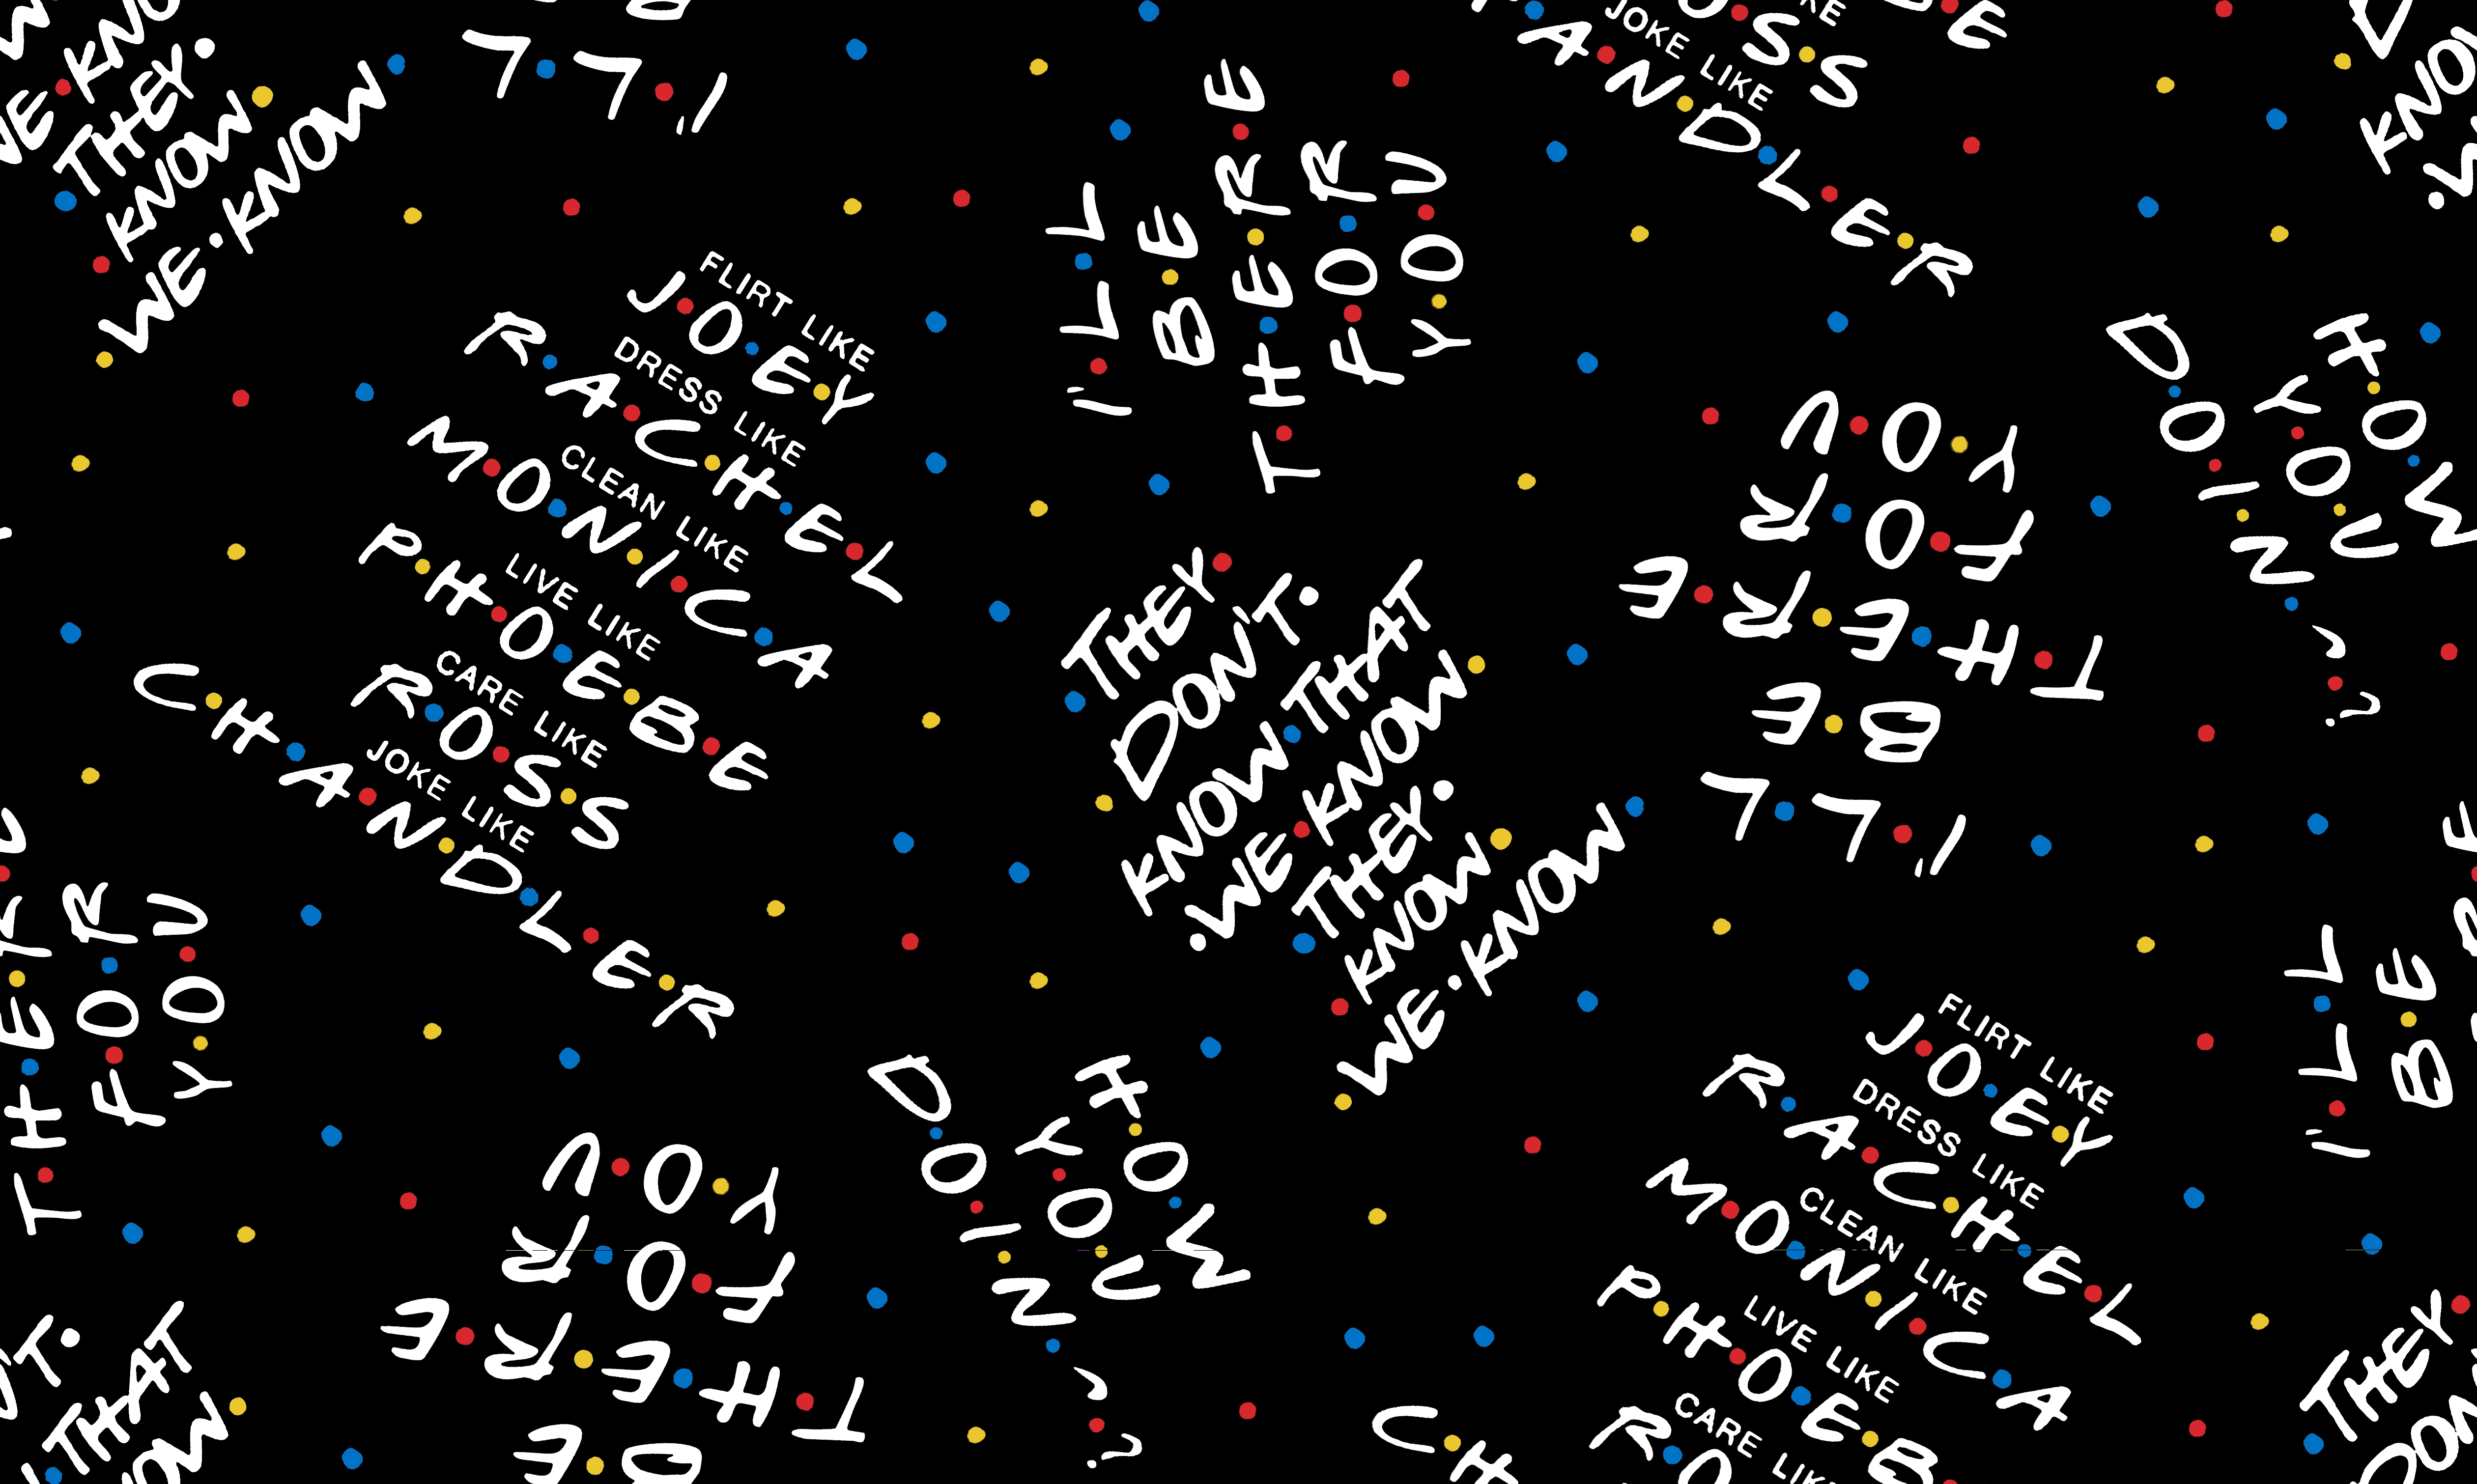 KNOW
THEY.
KNOW
WE.KNOW
I'LL
I'LL
BE
THERE
FOR
YOU
JOKE LIKE
ANDLER
FLIRT LIKE
JOEY
DRESS LIKE
RACHEL
CLEAN LIKE
MONICA
LIVE LIKE
PHOEBE
CARE LIKE
ROSS
JOKE LIKE
CHANDLER
I'LL
BE
THERE
FOR
YOU
HOW
YOU
DOIN'?
THEY
DON'T.
KNOW THAT
.WE KNOW
THEY.
KNOW
WE.KNOW
FOR
YOU
HOW
YOU
DOIN'?
BE
THERE
FOR
YOU
I'LL
BE
FLIRT LIKE
JOEY
DRESS LIKE
RACHEL
CLEAN LIKE
MONICA
LIVE LIKE
PHOEBE
CARE LIKE
THAT
THEY